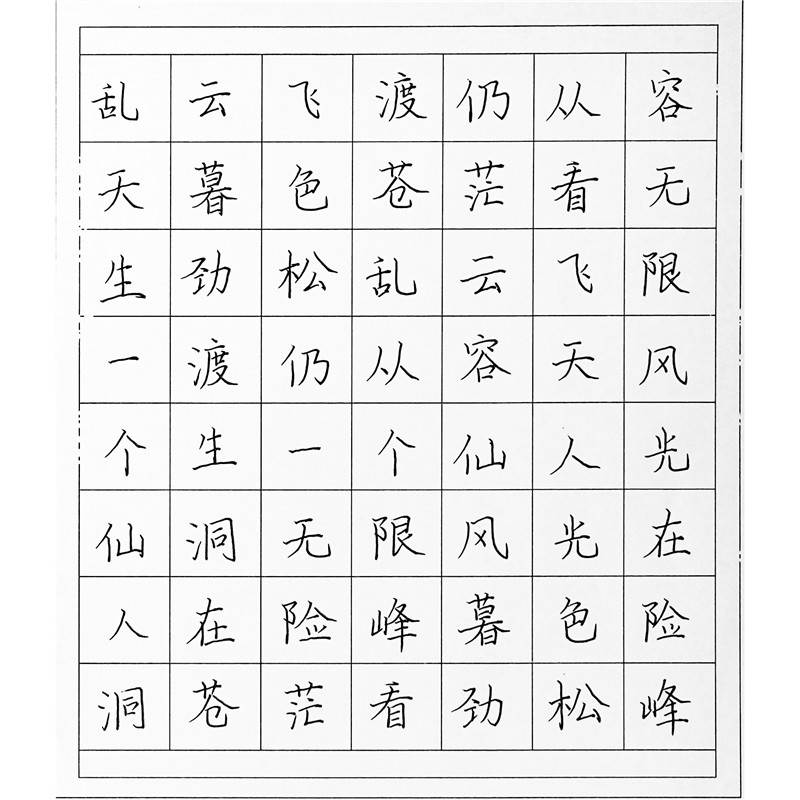 乱云飞渡仍从容
天暮色苍茫看无
生劲松乱云飞限
一渡仍从容天风
个生一个仙人光
仙洞无限风光在
人在险峰暮色险
洞苍茫看劲松峰